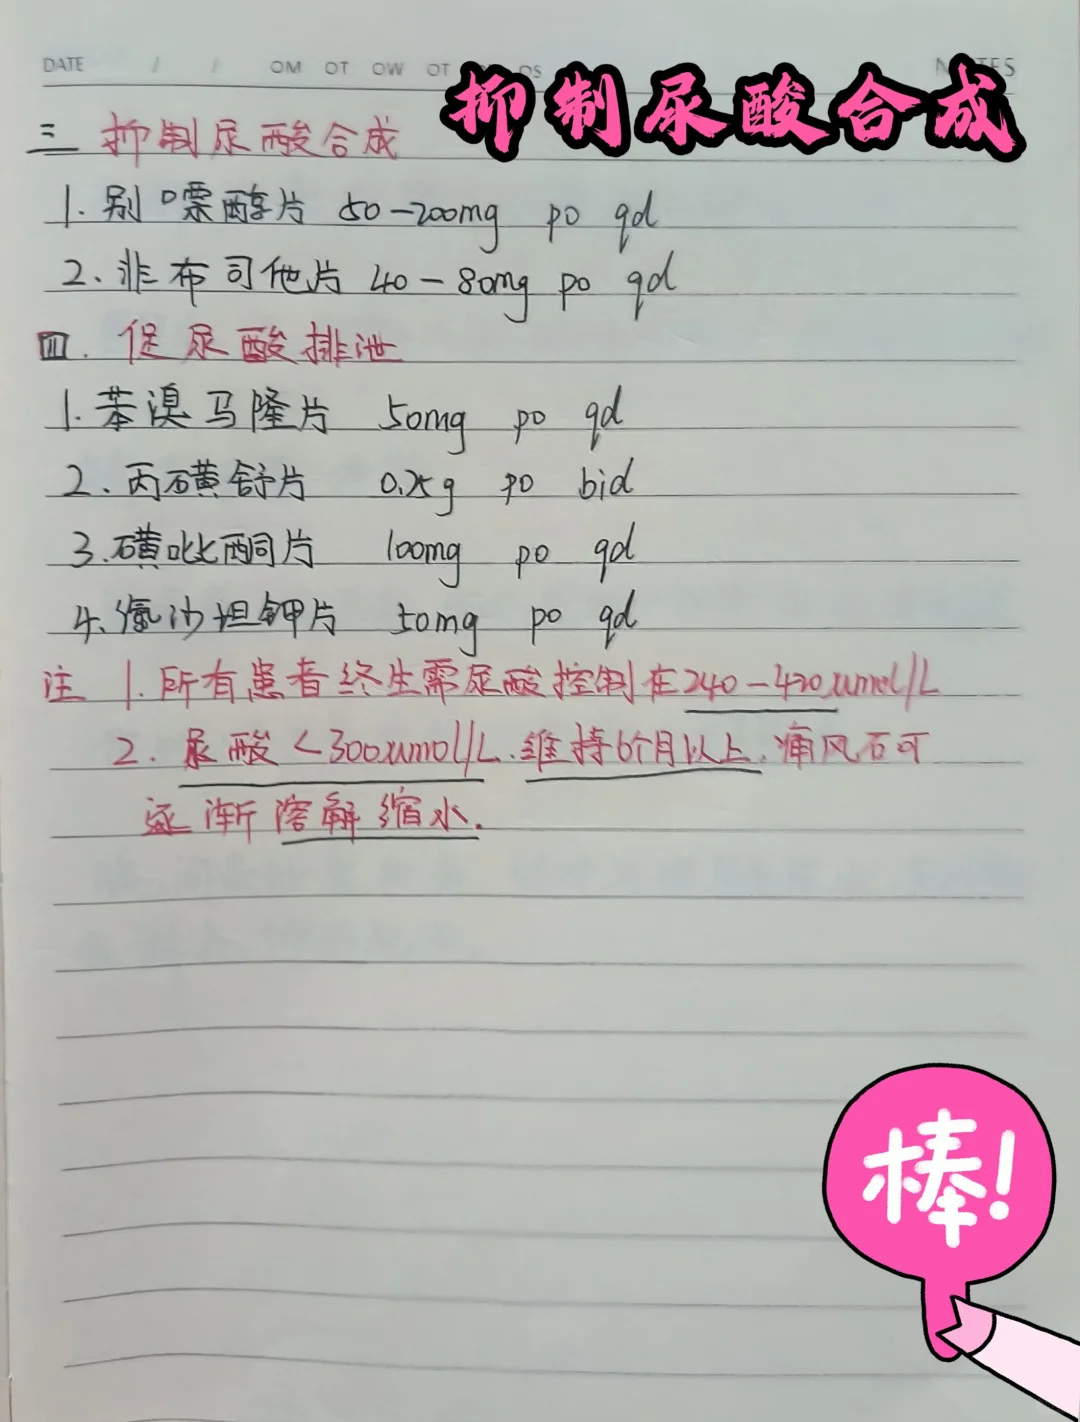 DATE / / OM OT OW OT
NOTES
抑制尿酸合成
三 抑制尿酸合成
1. 别嘌醇片 50-200mg po qd
2. 非布司他片 40-80mg po qd
四. 促尿酸排泄
1. 苯溴马隆片 50mg po qd
2. 丙磺舒片 0.25g po bid
3. 磺吡酮片 100mg po qd
4. 氯沙坦钾片 50mg po qd
注 1. 所有患者终生需尿酸控制在240-420μmol/L
2. 尿酸<300μmol/L.维持6个月以上.痛风石可
逐渐溶解缩水.
棒!